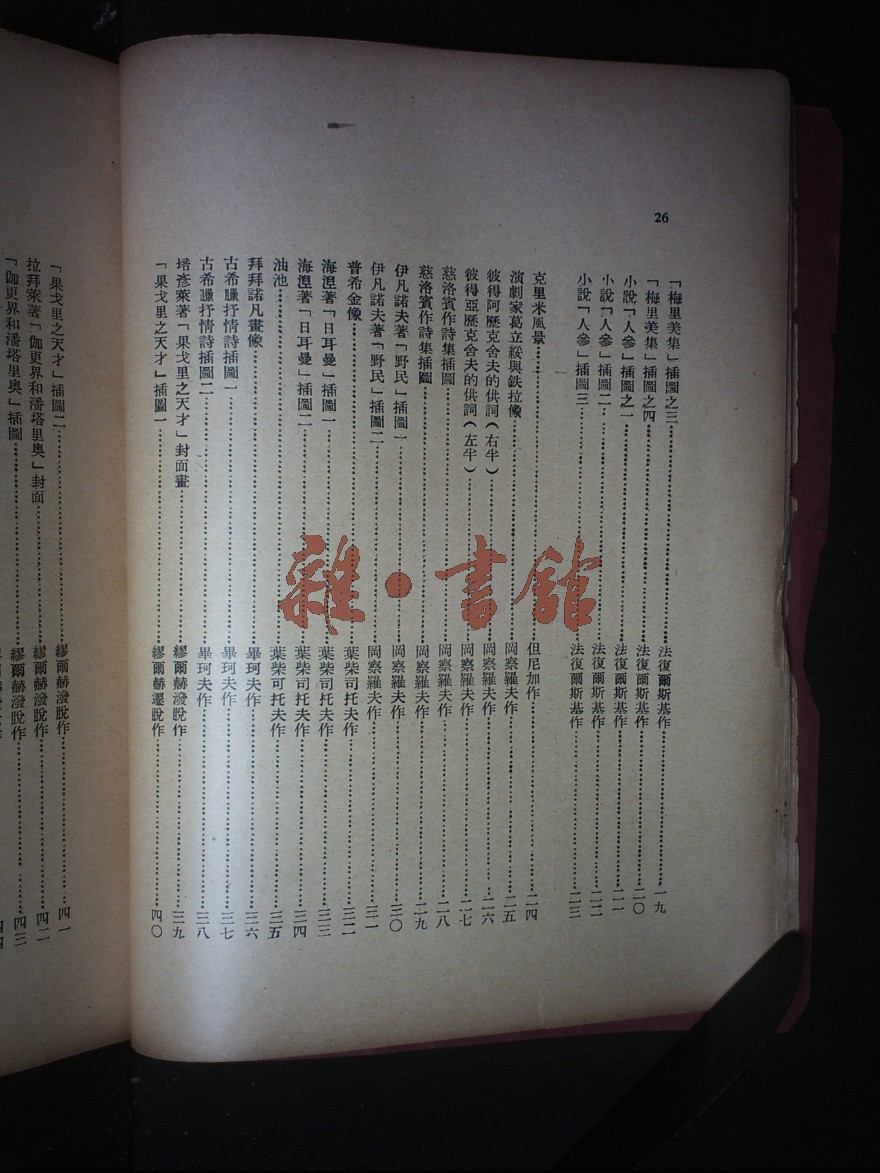 26
「梅里美集」插圖之三……法復爾斯基作……一九
「梅里美集」插圖之四……法復爾斯基作……二〇
小說「人參」插圖之一……法復爾斯基作……二一
小說「人參」插圖二……法復爾斯基作……二二
小說「人參」插圖三……法復爾斯基作……二三
克里米風景……但尼加作……二四
演劇家葛立綏與鉄拉像……岡察羅夫作……二五
彼得阿歷克舍夫的供詞(右半)……岡察羅夫作……二六
彼得亞歷克舍夫的供詞(左半)……岡察羅夫作……二七
慈洛賓作詩集插圖……岡察羅夫作……二八
慈洛賓作詩集插圖……岡察羅夫作……二九
伊凡諾夫著「野民」插圖一……岡察羅夫作……三〇
伊凡諾夫著「野民」插圖二……岡察羅夫作……三一
普希金像……葉柴司托夫作……三二
海涅著「日耳曼」插圖一……葉柴司托夫作……三三
海涅著「日耳曼」插圖二……葉柴司托夫作……三四
油池……葉柴可托夫作……三五
拜拜諾凡畫像……畢珂夫作……三六
古希臘抒情詩插圖一……畢珂夫作……三七
古希臘抒情詩插圖二……畢珂夫作……三八
塔彥萊著「果戈里之天才」封面畫……繆爾赫潑脫作……三九
「果戈里之天才」插圖一……繆爾赫潑脫作……四〇
「果戈里之天才」插圖二……繆爾赫潑脫作……四一
拉拜萊著「伽更界和潘塔里奥」封面……繆爾赫潑脫作……四二
「伽更界和潘塔里奥」插圖……繆爾赫潑脫作……四三
四四
雜·書館